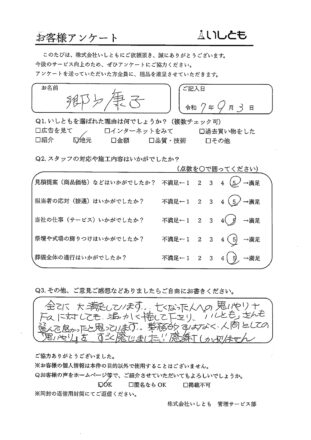 お客様アンケート
いしとも
このたびは、株式会社いしともにご依頼頂き、誠にありがとうございます。
今後のサービス向上のため、ぜひアンケートにご協力ください。
アンケートを送っていただいた方全員に、粗品を進呈させていただきます。
お名前
ご記入日
康子
令和 7年 9月 3日
Q1. いしともを選ばれた理由は何でしょうか？（複数チェック可）
□広告を見て □インターネットをみて □過去買い物をした
□紹介 ☑地元 □金額 □品質・技術 □その他
Q2. スタッフの対応や施工内容はいかがでしたか？
（点数を○で囲ってください）
見積提案（商品価格）などはいかがでしたか？ 不満足←1 2 3 4 5 →満足
担当者の応対（接遇）はいかがでしたか？ 不満足←1 2 3 4 5 →満足
当社の仕事（サービス）いかがでしたか？ 不満足←1 2 3 4 5 →満足
祭壇や式場の飾りつけはいかがでしたか？ 不満足←1 2 3 4 5 →満足
葬儀全体の進行はいかがでしたか？ 不満足←1 2 3 4 5 →満足
Q3. その他、ご意見ご感想などありましたらご自由にお書きください。
全てに大満足しています。亡くなった人への思いやり+
に対しても温かく接して下さり、いしともさんを
て良かったと思っています。事務的ではなく、人間としての
"思いやり"を すごく感じました!! 感謝しかありません
ご協力ありがとうございました。
※お客様の個人情報は本件の目的以外で使用することはございません。
Qお客様の声をホームページ等で、ご紹介させていただいてもよろしいでしょうか。
☑OK □匿名ならOK □掲載不可
※同封の返信用封筒にてご返信ください。
株式会社いしとも 管理サービス部